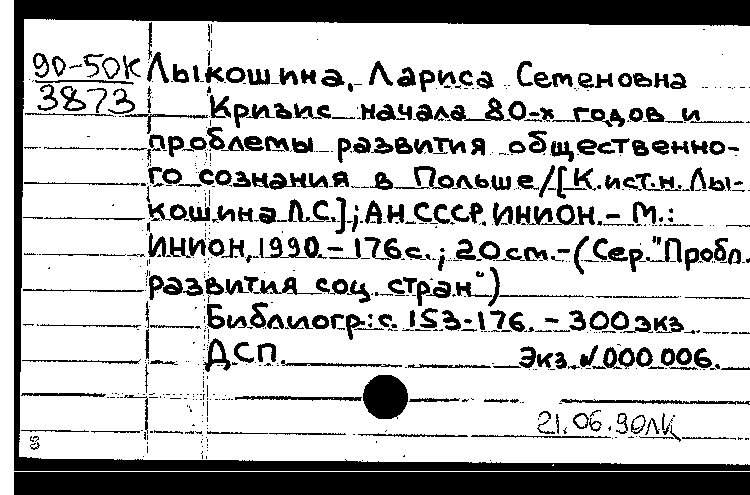 90-50К Лыкошина, Лариса Семеновна
3873 Кризис начала 80-х годов и
проблемы развития общественно-
го сознания в Польше/[К.ист.н. Лы-
кошина Л.С.]; АН СССР. ИНИОН. - М.:
ИНИОН, 1990 - 176 с.; 20 см. - (Сер. "Пробл.
развития соц. стран")
Библиогр.: с. 153-176. - 300 экз.
ДСП. Экз. № 000 006.
21.06.90ЛК